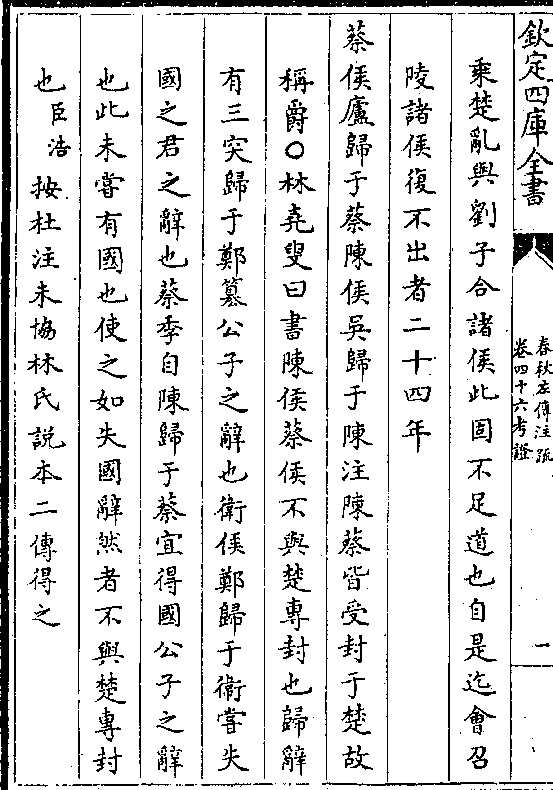 欽定四庫全書
春秋左傳注疏
卷四十六考證
一
乘楚亂與劉子合諸侯此固不足道也自是迄會召
陵諸侯復不出者二十四年
蔡侯廬歸于蔡陳侯吳歸于陳注陳蔡皆受封于楚故
稱爵○林堯叟曰書陳侯蔡侯不與楚專封也歸辭
有三突歸于鄭簒公子之辭也衛侯鄭歸于衞嘗失
國之君之辭也蔡季自陳歸于蔡宜得國公子之辭
也此未嘗有國也使之如失國辭然者不與楚專封
也臣浩按杜注未協林氏說本二傳得之